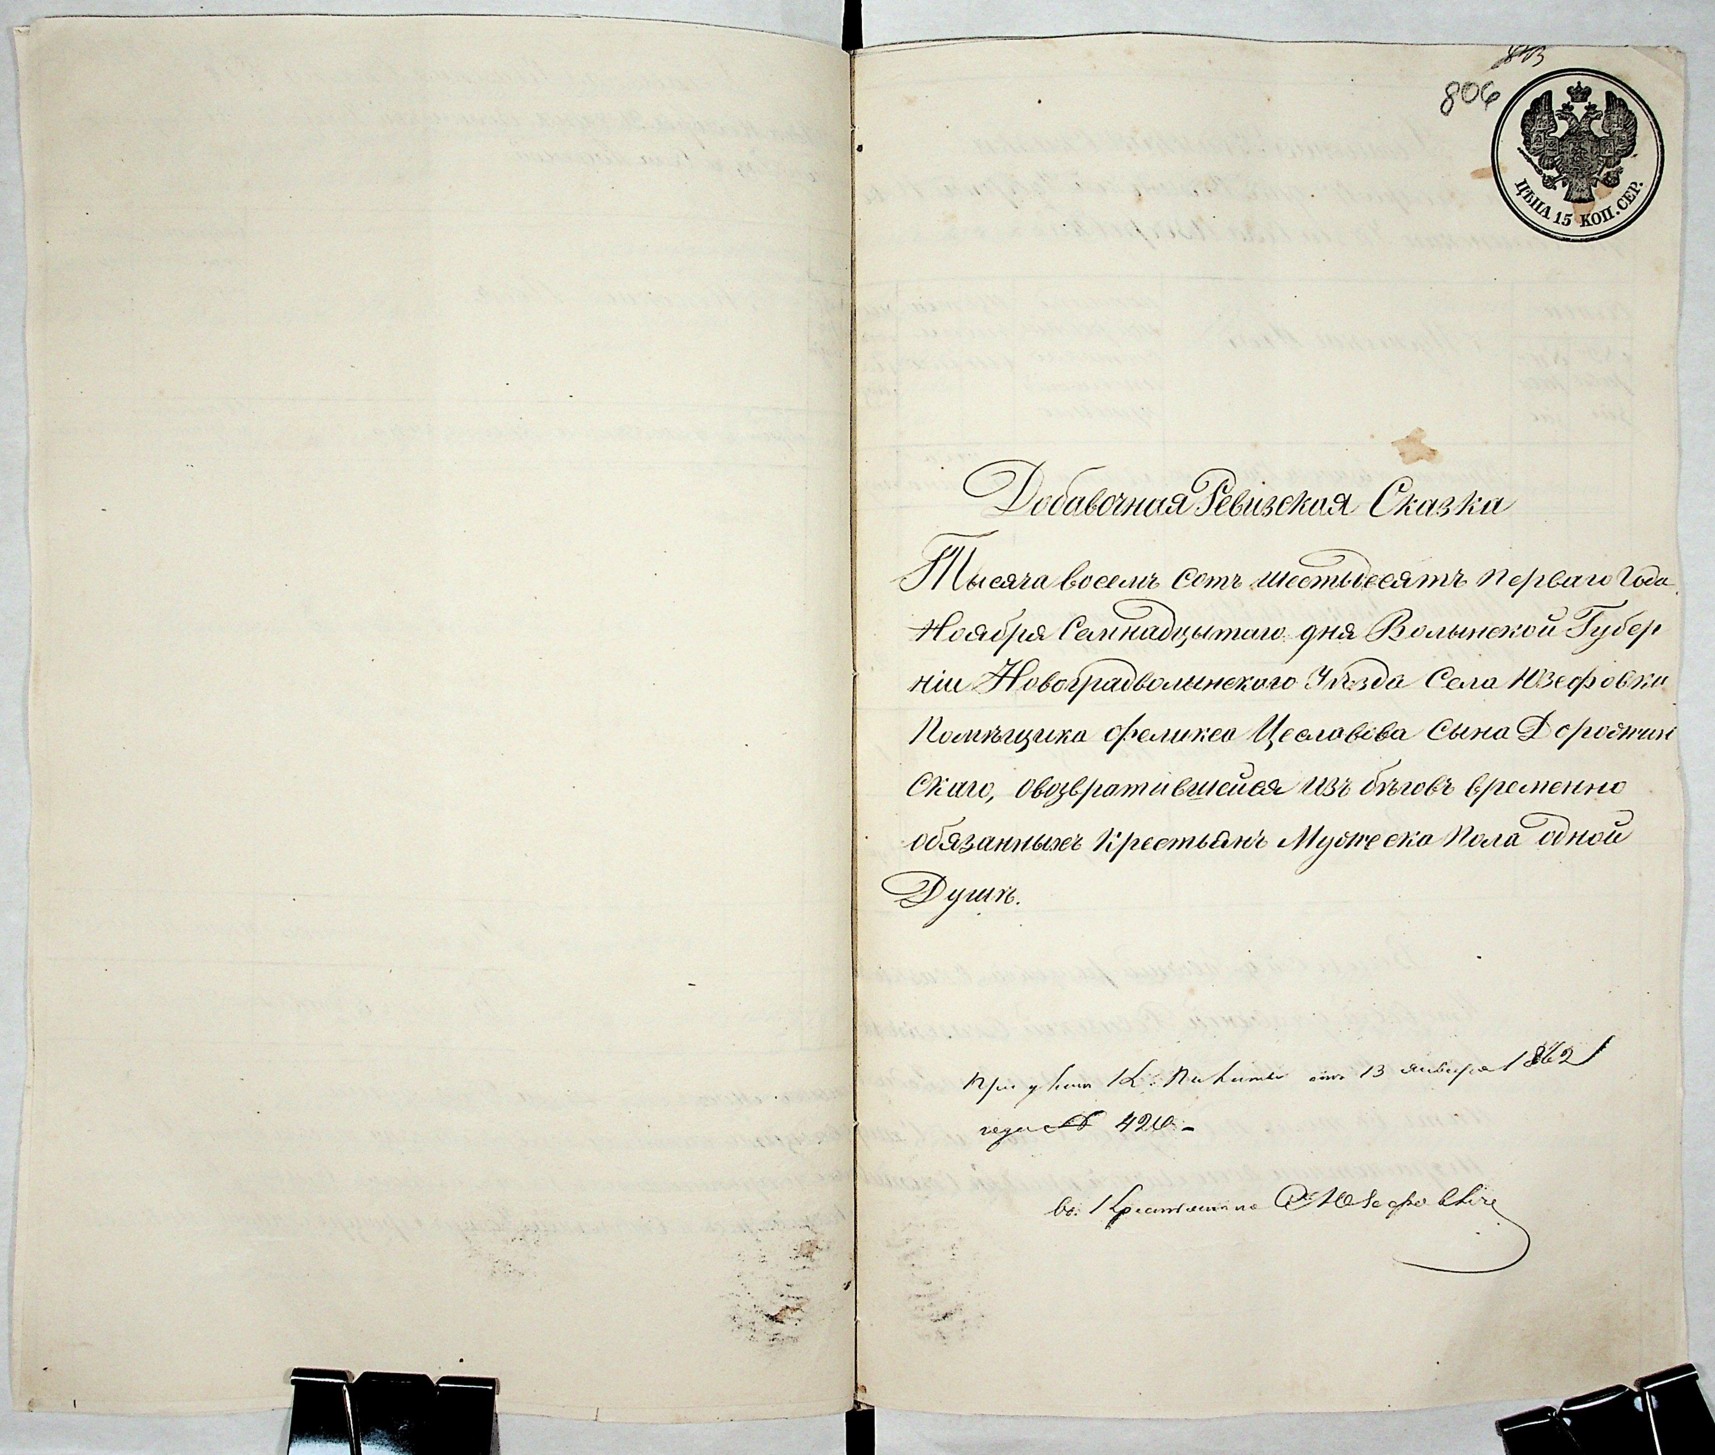 806
ЦѢНА 15 КОП. СЕР.
Добавочная Ревизская Сказка
Тысяча восемь сотъ шестьдесятъ перваго Года
Ноября Семнадцытаго дня Волынской Губер
ніи Новоградволынского Уѣзда Села Юзефовки
Помѣщика Феликса Цеславова сына Доротин
скаго, овозвратившейся изъ бѣговъ временно
обязанныхъ крестьянъ Мужеска пола одной
Душѣ.
При указѣ К. Палаты отъ 13 января 1862
года № 420